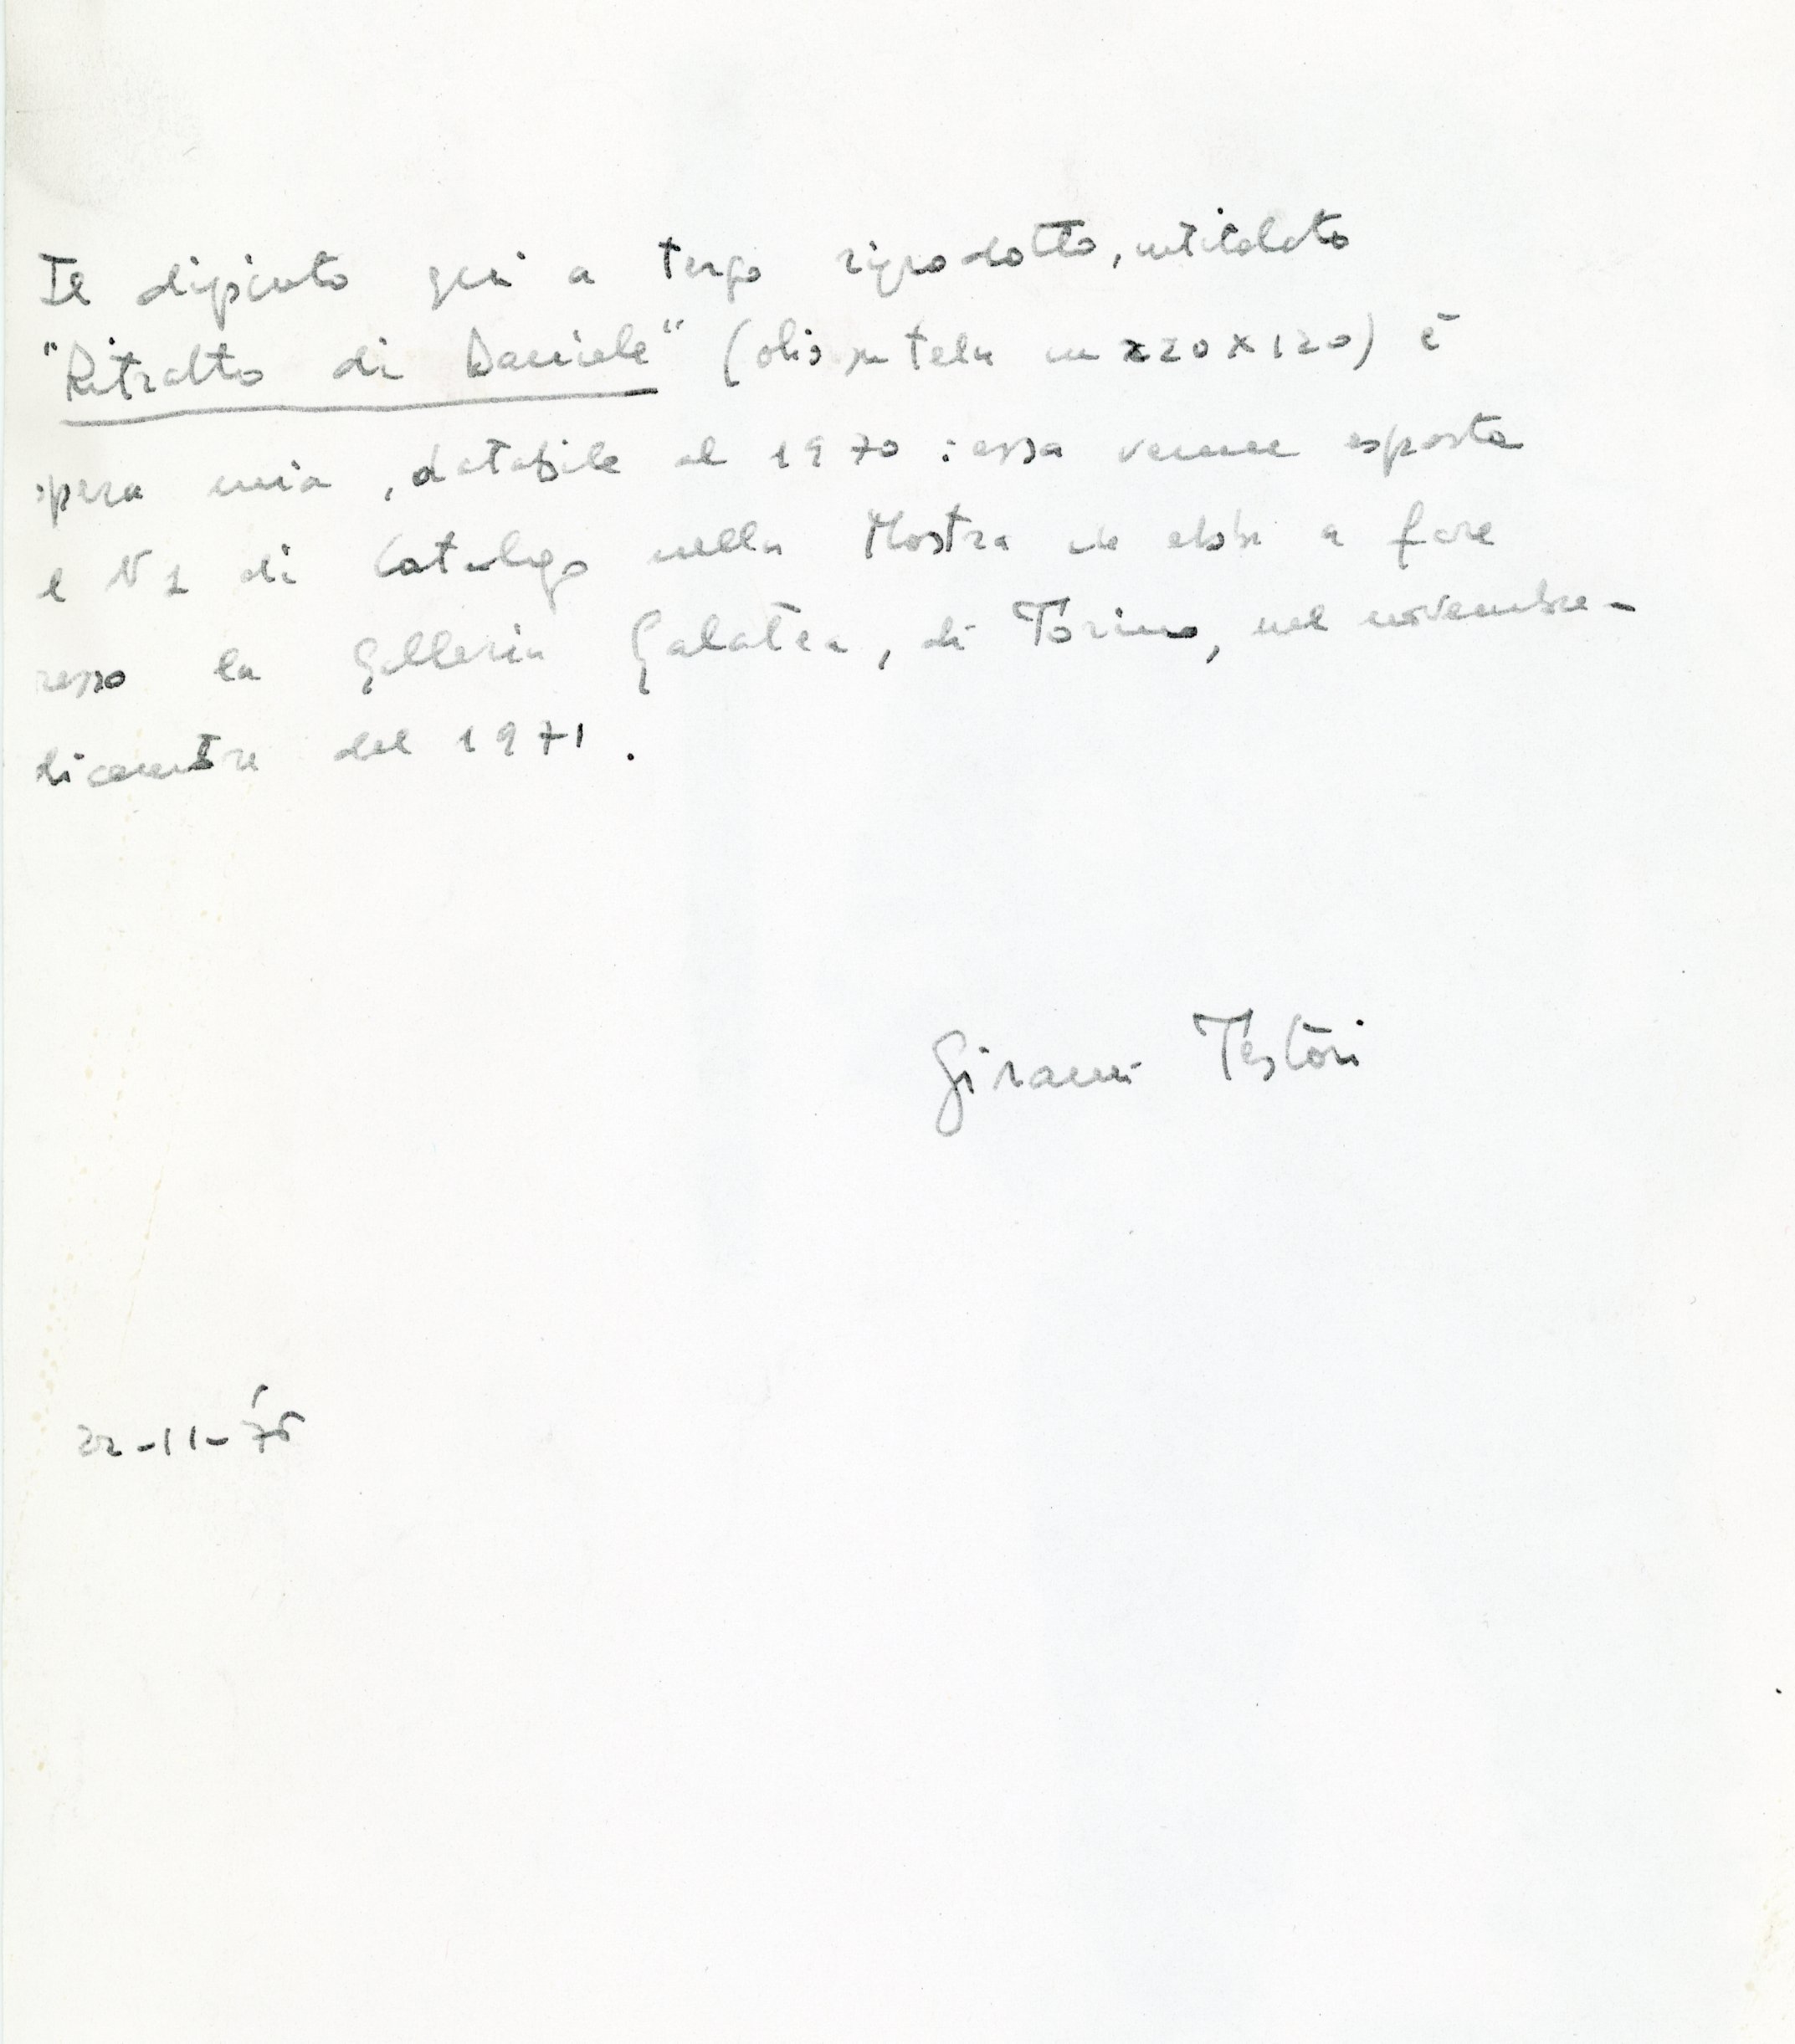 Il dipinto qui a tergo riprodotto, intitolato
"Ritratto di Daniele" (olio su tela cm 220 x 120) è
opera mia, databile al 1970: essa venne esposta
al N 1 di Catalogo nella Mostra che ebbi a fare
presso la Galleria Galatea, di Torino, nel novembre-
dicembre del 1971.
Giovanni Testori
22-11-'76